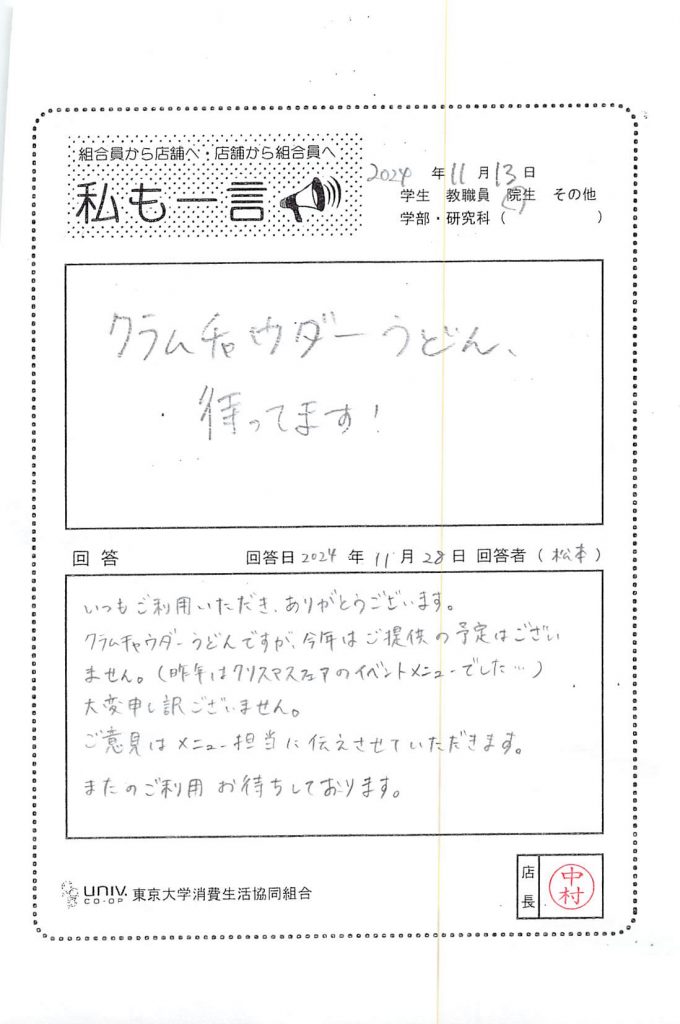 組合員から店舗へ・店舗から組合員へ
私も一言
2024 年 11 月 13 日
学生 教職員 院生 その他
学部・研究科（ ）
クラムチャウダーうどん、
待ってます！
回答 回答日 2024 年 11 月 28 日 回答者（松本）
いつもご利用いただき、ありがとうございます。
クラムチャウダーうどんですが、今年はご提供の予定はござい
ません。（昨年はクリスマスフェアのイベントメニューでした…）
大変申し訳ございません。
ご意見はメニュー担当に伝えさせていただきます。
またのご利用お待ちしております。
UNIV. CO-OP 東京大学消費生活協同組合
店長 中村